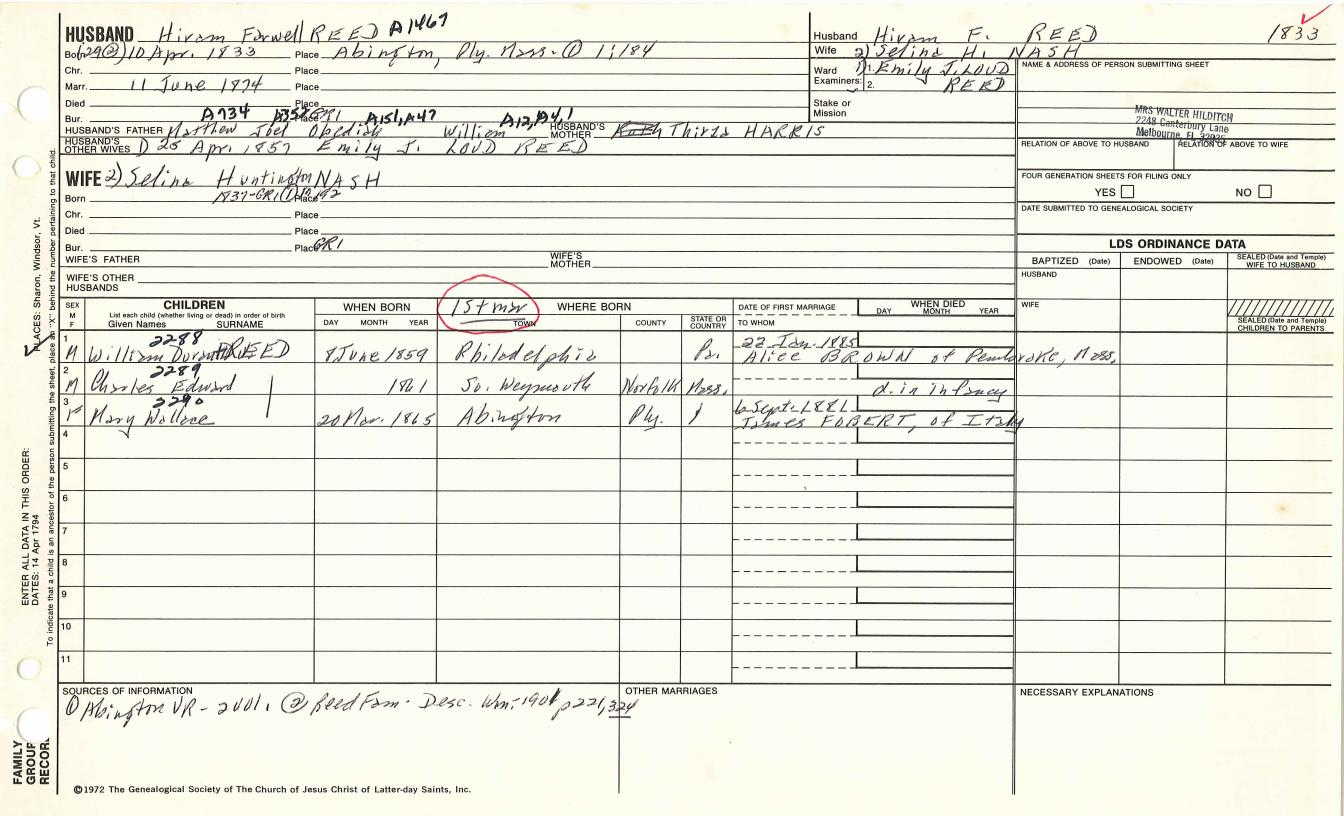 HUSBAND Hiram Farwell REED A1467
Born (29②) 10 Apr. 1833 Place Abington, Ply. Mass. ① 1:184
Chr. Place
Marr. 11 June 1874 Place
Died Place
Bur. Place GR1
A734 A352 A151, A47 A12, A4, 1
HUSBAND'S FATHER Matthew Joel Obediah William HUSBAND'S MOTHER Thirza HARRIS
HUSBAND'S OTHER WIVES 25 Apr. 1857 Emily J. LOUD REED
WIFE 2) Selina Huntington NASH
Born 1837-GR1 Place
Chr. Place
Died Place
Bur. Place GR1
WIFE'S FATHER WIFE'S MOTHER
WIFE'S OTHER HUSBANDS
Husband Hiram F. REED 1833
Wife 2) Selina H. NASH
Ward 1. 1) Emily J. LOUD
Examiners: 2. REED
Stake or Mission
NAME & ADDRESS OF PERSON SUBMITTING SHEET
MRS WALTER HILDITCH
2248 Canterbury Lane
Melbourne, FL 32935
RELATION OF ABOVE TO HUSBAND RELATION OF ABOVE TO WIFE
FOUR GENERATION SHEETS FOR FILING ONLY
YES NO
DATE SUBMITTED TO GENEALOGICAL SOCIETY
LDS ORDINANCE DATA
BAPTIZED (Date) ENDOWED (Date) SEALED (Date and Temple) WIFE TO HUSBAND
HUSBAND
WIFE
SEALED (Date and Temple) CHILDREN TO PARENTS
SEX M F CHILDREN
List each child (whether living or dead) in order of birth
Given Names SURNAME
WHEN BORN
DAY MONTH YEAR
1st mar
WHERE BORN
TOWN COUNTY STATE OR COUNTRY
DATE OF FIRST MARRIAGE
TO WHOM
WHEN DIED
DAY MONTH YEAR
2288 22 Jan. 1885
1 M William REED 8 June 1859 Philadelphia Pa. Alice BROWN of Pembroke, Mass.
2289
2 M Charles Edward 1861 So. Weymouth Norfolk Mass. d. in infancy
2290 6 Sept. 1881
3 F Mary Wallace 20 Mar. 1865 Abington Ply. James FOBERT, of Italy
4
5
6
7
8
9
10
11
SOURCES OF INFORMATION
① Abington VR - 2 vol. ② Reed Fam. Desc. Wm. 1901 p221, 324
OTHER MARRIAGES
NECESSARY EXPLANATIONS
©1972 The Genealogical Society of The Church of Jesus Christ of Latter-day Saints, Inc.
FAMILY GROUP RECORD
ENTER ALL DATA IN THIS ORDER:
DATES: 14 Apr 1794
PLACES: Sharon, Windsor, Vt.
To indicate that a child is an ancestor of the person submitting the sheet, place an "X" behind the number pertaining to that child.